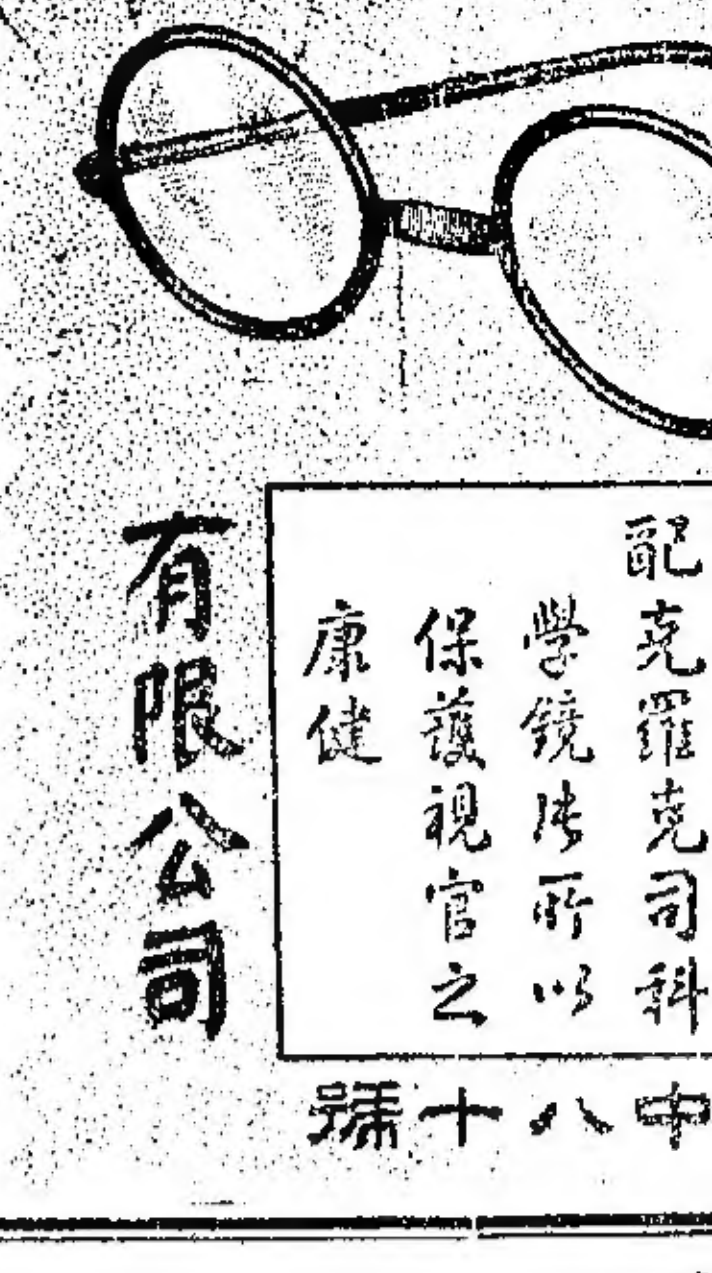 配克羅克司科
學鏡片所以
保護視官之
康健
有限公司
中八十號